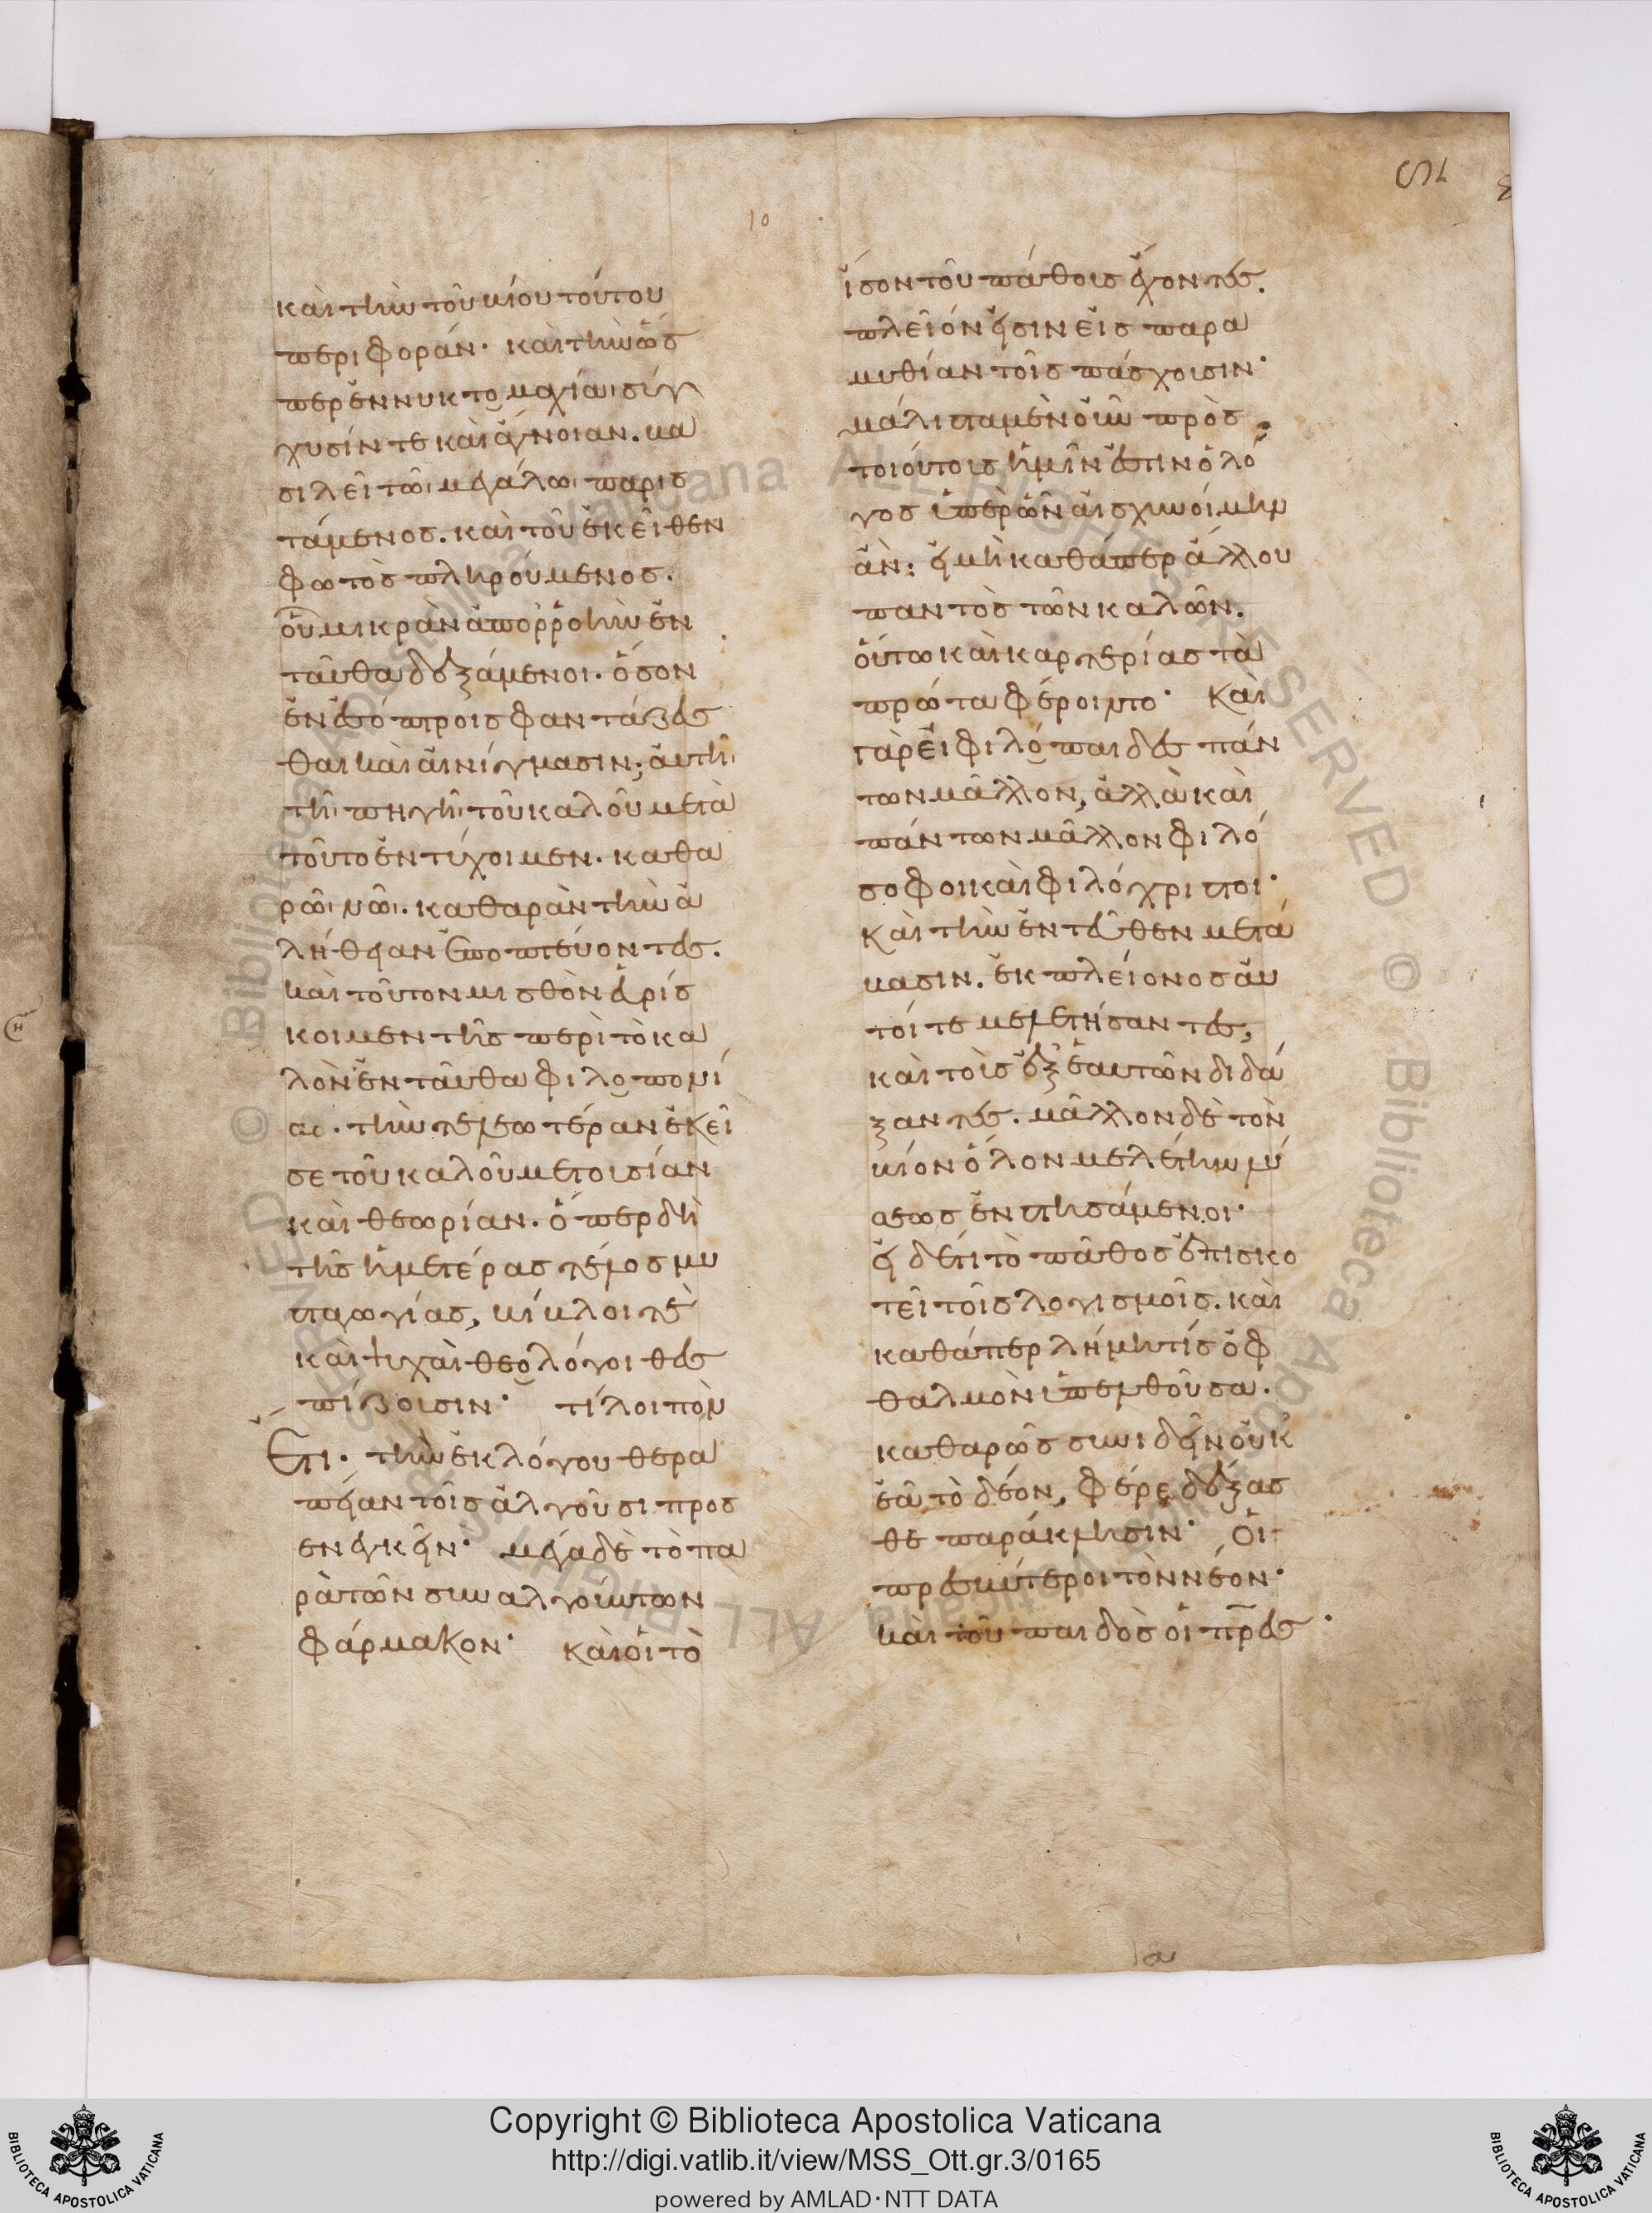 10
καὶ τὴν τοῦ βίου τούτου
περιφοράν· καὶ τὴν ὥς
περ ἐν νυκτομαχίαι σύγ
χυσίν τε καὶ ἄγνοιαν. βα
σιλεῖ τῶι μεγάλωι παρισ
τάμενος. καὶ τοῦ ἐκεῖθεν
φωτὸς πληρούμενος.
οὗ μικρὰν ἀπορροὴν ἐν
ταῦθα δεξάμενοι. ὅσον
ἐν ἐσόπτροις φαντάζεσ
θαι καὶ αἰνίγμασιν; αὐτῆι
τῆι πηγῆι τοῦ καλοῦ μετὰ
τοῦτο ἐντύχοιμεν. καθα
ρῶι νῶι. καθαρὰν τὴν ἀ
λήθειαν ἐποπτεύοντες.
καὶ τοῦτον μισθὸν εὑρίσ
κοιμεν τῆς περὶ τὸ κα
λὸν ἐνταῦθα φιλοπονί
ας. τὴν τελεωτέραν ἐκεῖ
σε τοῦ καλοῦ μετουσίαν
καὶ θεωρίαν. ὅπερ δὴ
τῆς ἡμετέρας τέλος μυ
σταγωγίας, βίβλοι τὲ
καὶ ψυχαὶ θεολόγοι θεσ
πίζουσιν· τί λοιπὸν
Ἔτι. τὴν ἐκ λόγου θερα
πείαν τοῖς ἀλγοῦσι προσ
ενεγκεῖν· μέγα δὲ τὸ πα
ρὰ τῶν συναλγούντων
φάρμακον· καὶ οἱ τὸ
ἴσον τοῦ πάθους ἔχοντες.
πλεῖόν εἰσιν εἰς παρα
μυθίαν τοῖς πάσχουσιν·
μάλιστα μὲν οὖν πρὸς
τοιούτους ἡμῖν ἐστιν ὁ λό
γος ὑπὲρ ὧν αἰσχυνοίμην
ἄν: εἰ μὴ καθάπερ ἄλλου
παντὸς τῶν καλῶν.
οὕτω καὶ καρτερίας τὰ
πρῶτα φέροιντο· Καὶ
γὰρ εἰ φιλόπαιδες πάν
των μᾶλλον, ἀλλὰ καὶ
πάντων μᾶλλον φιλό
σοφοι καὶ φιλόχριστοι·
Καὶ τὴν ἐντεῦθεν μετά
βασιν. ἐκ πλείονος αὐ
τοί τε μελετήσαντες,
καὶ τοὺς ἐξ ἑαυτῶν διδά
ξαντες. μᾶλλον δὲ τὸν
βίον ὅλον μελέτην λύ
σεως ἐνστησάμενοι·
εἰ δ' ἔτι τὸ πάθος ἐπισκο
τεῖ τοῖς λογισμοῖς. καὶ
καθάπερ λήμη τίς ὀφ
θαλμὸν ὑπελθοῦσα.
καθαρῶς συνιδεῖν οὐκ
ἐᾶ τὸ δέον, φέρε δέξασ
θε παράκλησιν· Οἱ
πρεσβύτεροι τὸν νέον·
καὶ τοῦ παιδὸς οἱ πρ̅ες
Copyright © Biblioteca Apostolica Vaticana
http://digi.vatlib.it/view/MSS_Ott.gr.3/0165
powered by AMLAD·NTT DATA